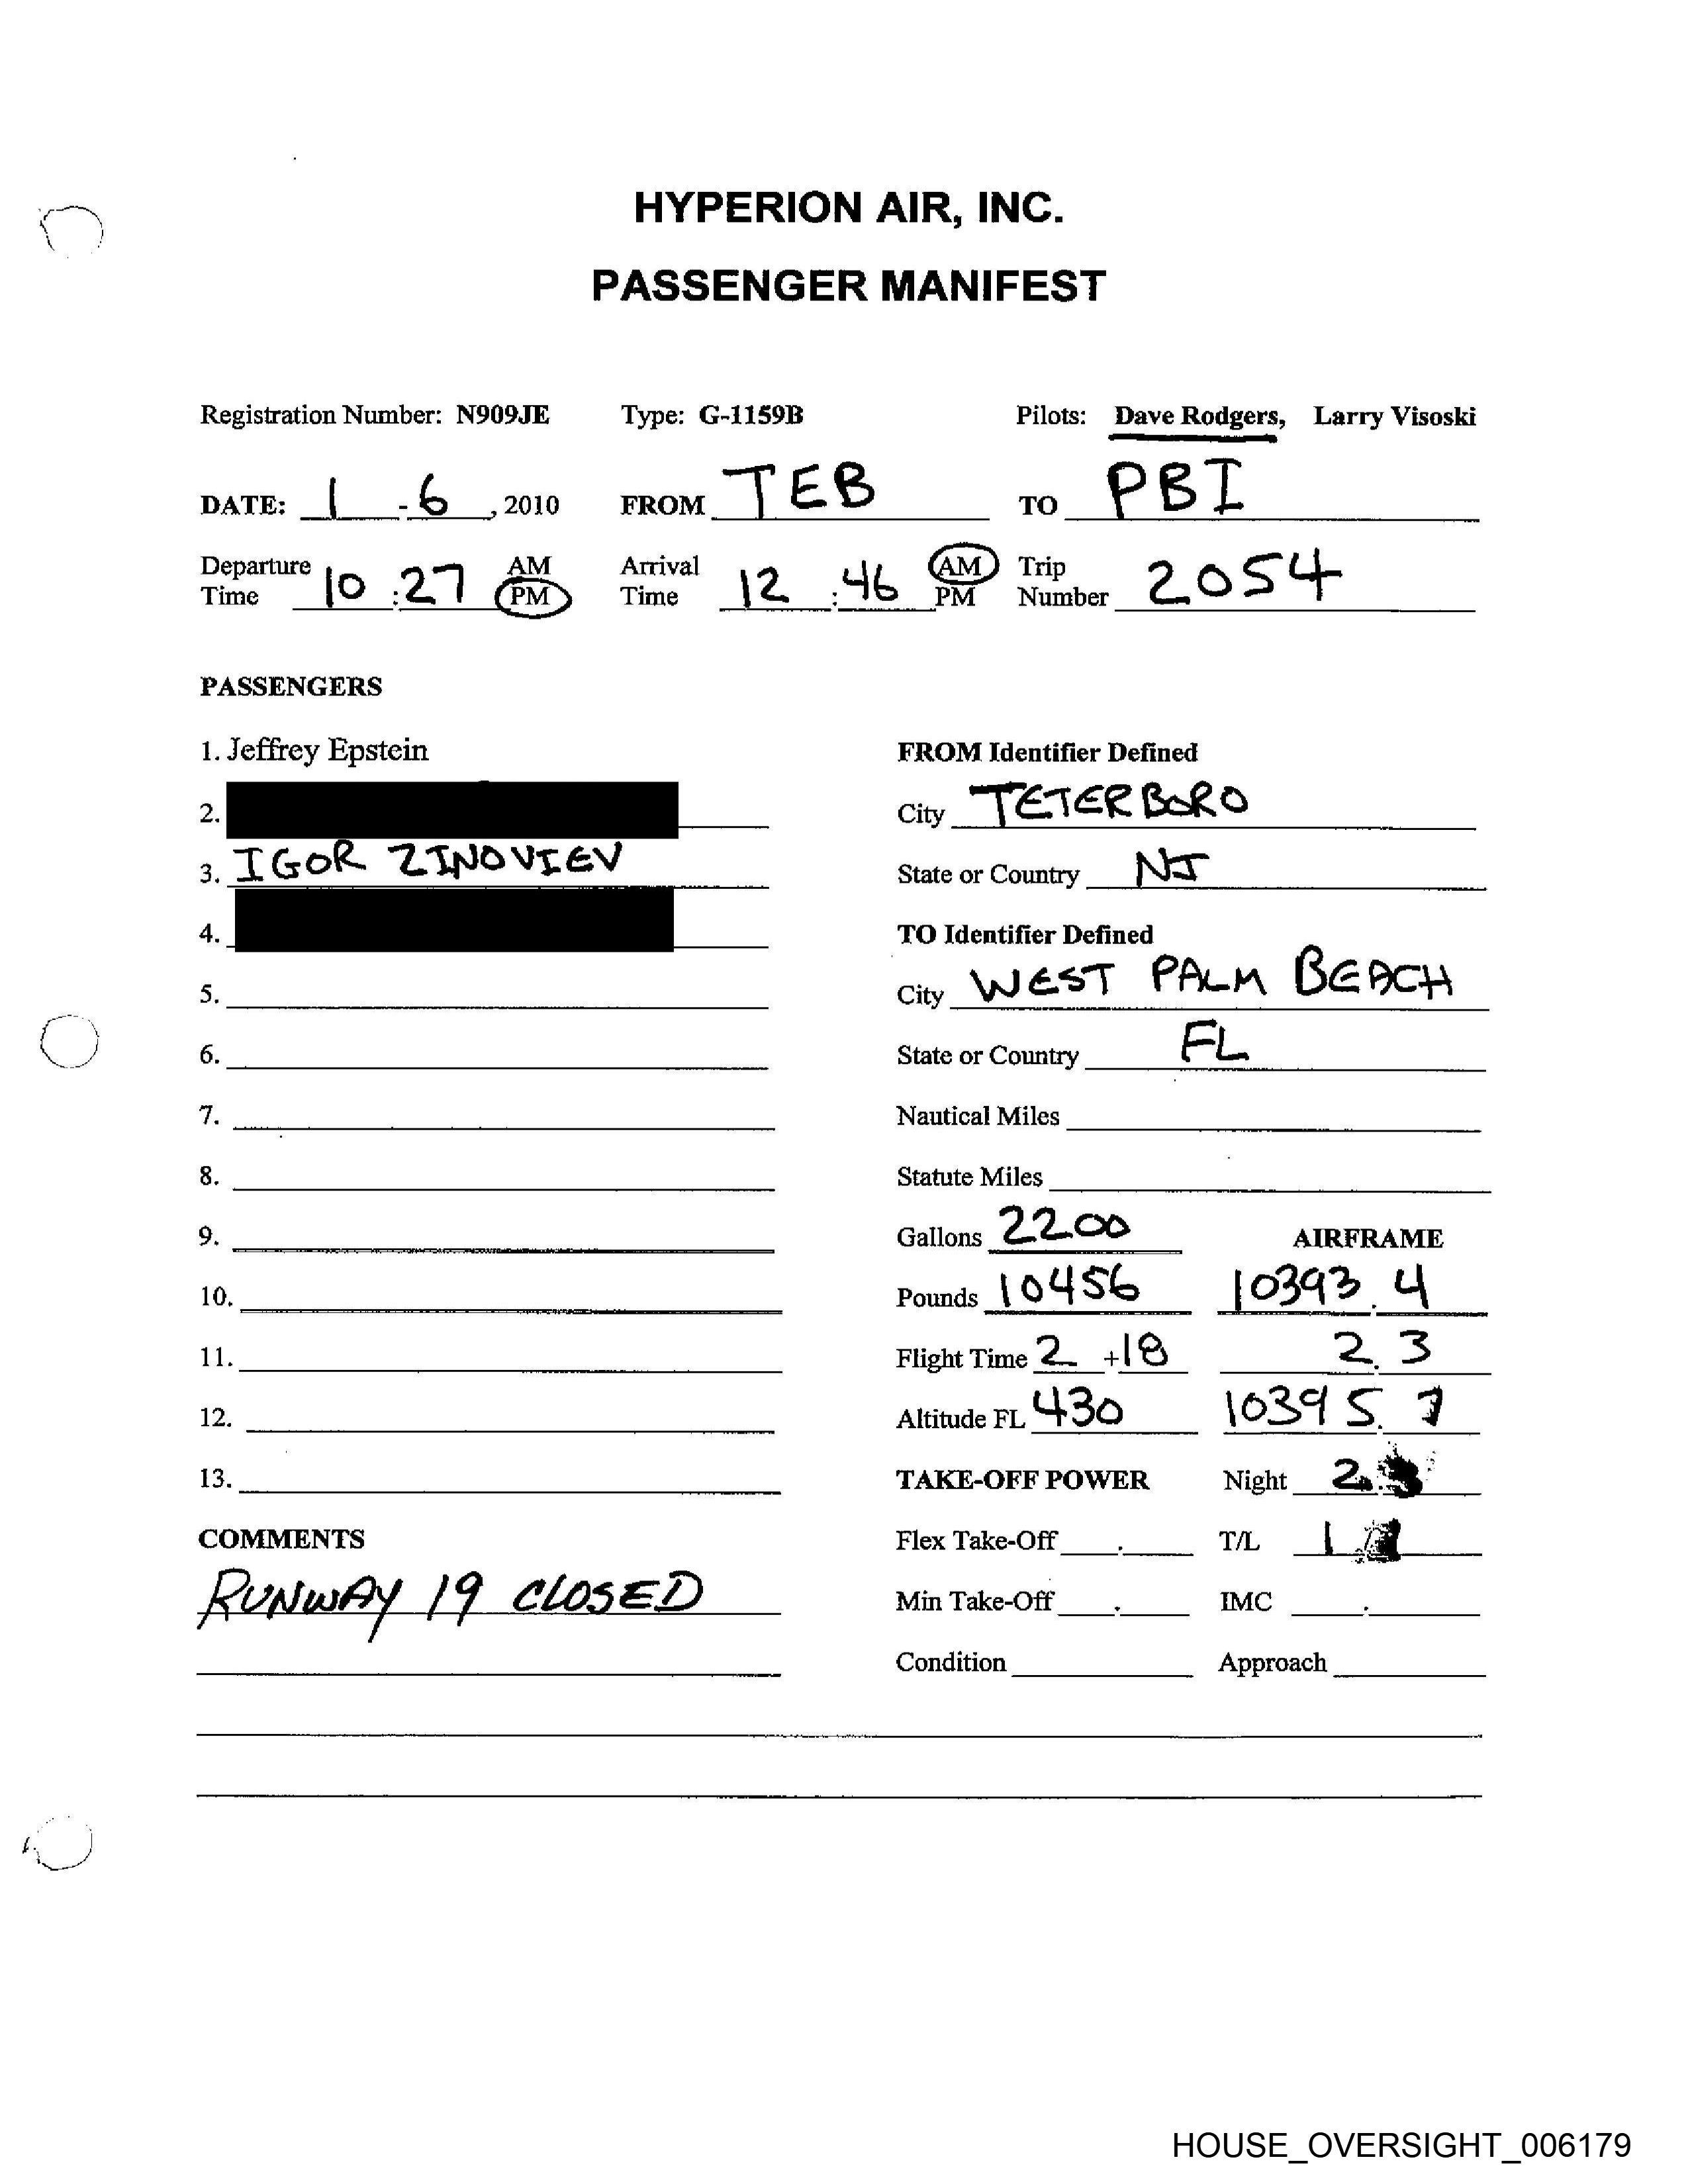 HYPERION AIR, INC.
PASSENGER MANIFEST
Registration Number: N909JE Type: G-1159B Pilots: Dave Rodgers, Larry Visoski
DATE: 1 - 6 , 2010 FROM TEB TO PBI
Departure Time 10 : 27 AM PM Arrival Time 12 : 46 AM PM Trip Number 2054
PASSENGERS
1. Jeffrey Epstein
2.
3. IGOR ZINOVIEV
4.
5.
6.
7.
8.
9.
10.
11.
12.
13.
COMMENTS
RUNWAY 19 CLOSED
FROM Identifier Defined
City TETERBORO
State or Country NJ
TO Identifier Defined
City WEST PALM BEACH
State or Country FL
Nautical Miles
Statute Miles
Gallons 2200 AIRFRAME
Pounds 10456 10393.4
Flight Time 2 +18 2.3
Altitude FL 430 10395.7
TAKE-OFF POWER Night 2.
Flex Take-Off . T/L 1
Min Take-Off . IMC .
Condition Approach
HOUSE_OVERSIGHT_006179